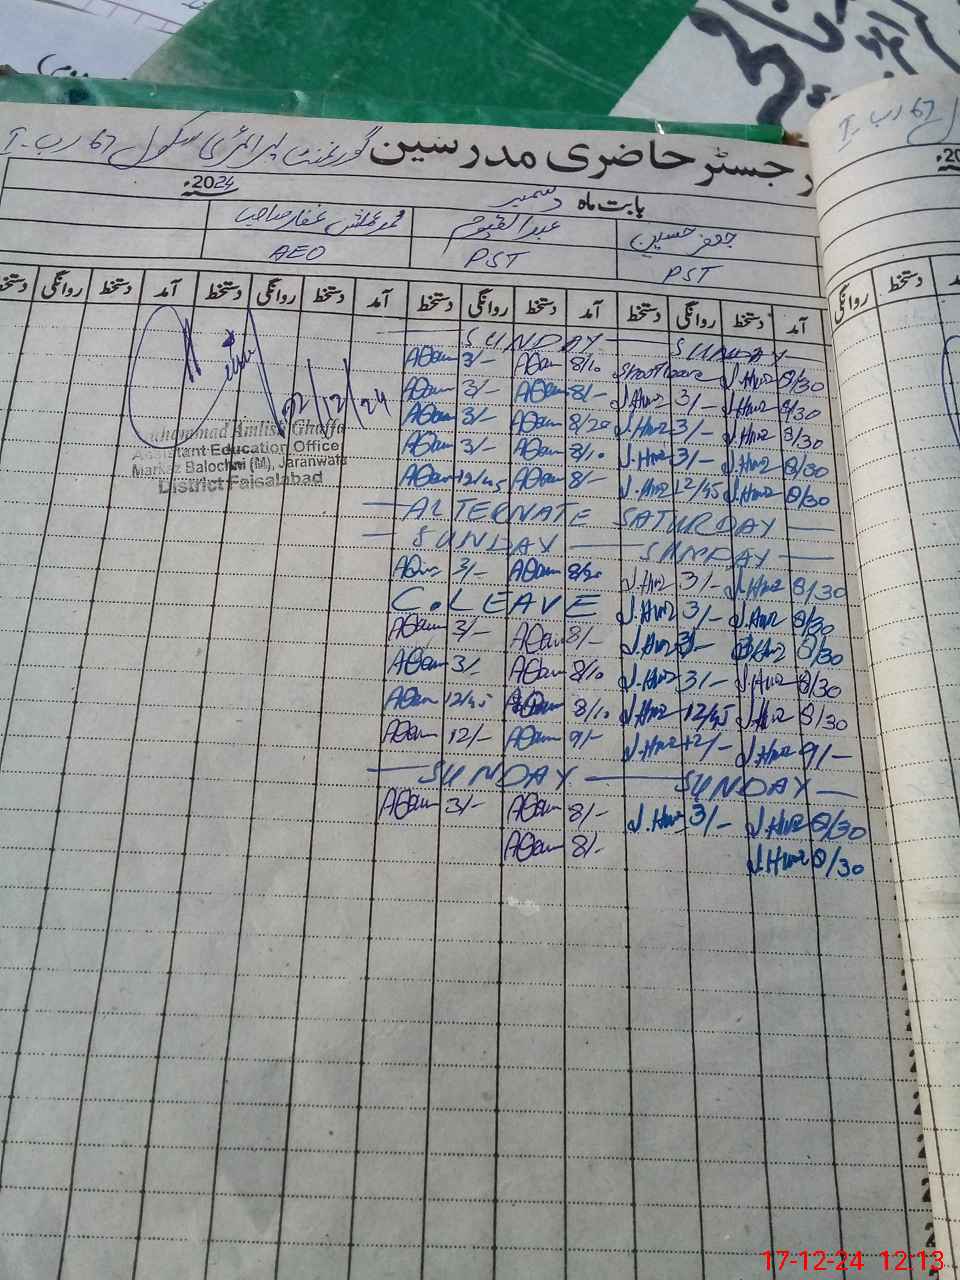 رجسٹر حاضری مدرسین گورنمنٹ پرائمری سکول 67 رب-I
بابت ماہ دسمبر 2024ء
جعفر حسین عبدالقیوم صاحب
PST PST AEO
آمد دستخط روانگی دستخط آمد دستخط روانگی دستخط آمد دستخط روانگی دستخط آمد دستخط روانگی دستخط
— SUNDAY — SUNDAY —
3/- 8/10 Short leave J.Hus 8/30
3/- 8/- J.Hus 3/- J.Hus 8/30
3/- 8/20 J.Hus 3/- J.Hus 8/30
3/- 8/10 J.Hus 3/- J.Hus 8/30
12/45 8/- J.Hus 12/45 J.Hus 8/30
— ALTERNATE SATURDAY —
— SUNDAY — SUNDAY —
3/- 8/20 J.Hus 3/- J.Hus 8/30
C.LEAVE J.Hus 3/- J.Hus 8/30
3/- 8/- J.Hus 3/- J.Hus 8/30
3/- 8/10 J.Hus 3/- J.Hus 8/30
12/45 8/10 J.Hus 12/45 J.Hus 8/30
12/- 9/- J.Hus 12/- J.Hus 9/-
— SUNDAY — SUNDAY —
3/- 8/- J.Hus 3/- J.Hus 8/30
8/- J.Hus 8/30
02/12/24
Assistant Education Office
Markaz Balochni (M), Jaranwala
District Faisalabad
17-12-24 12:13